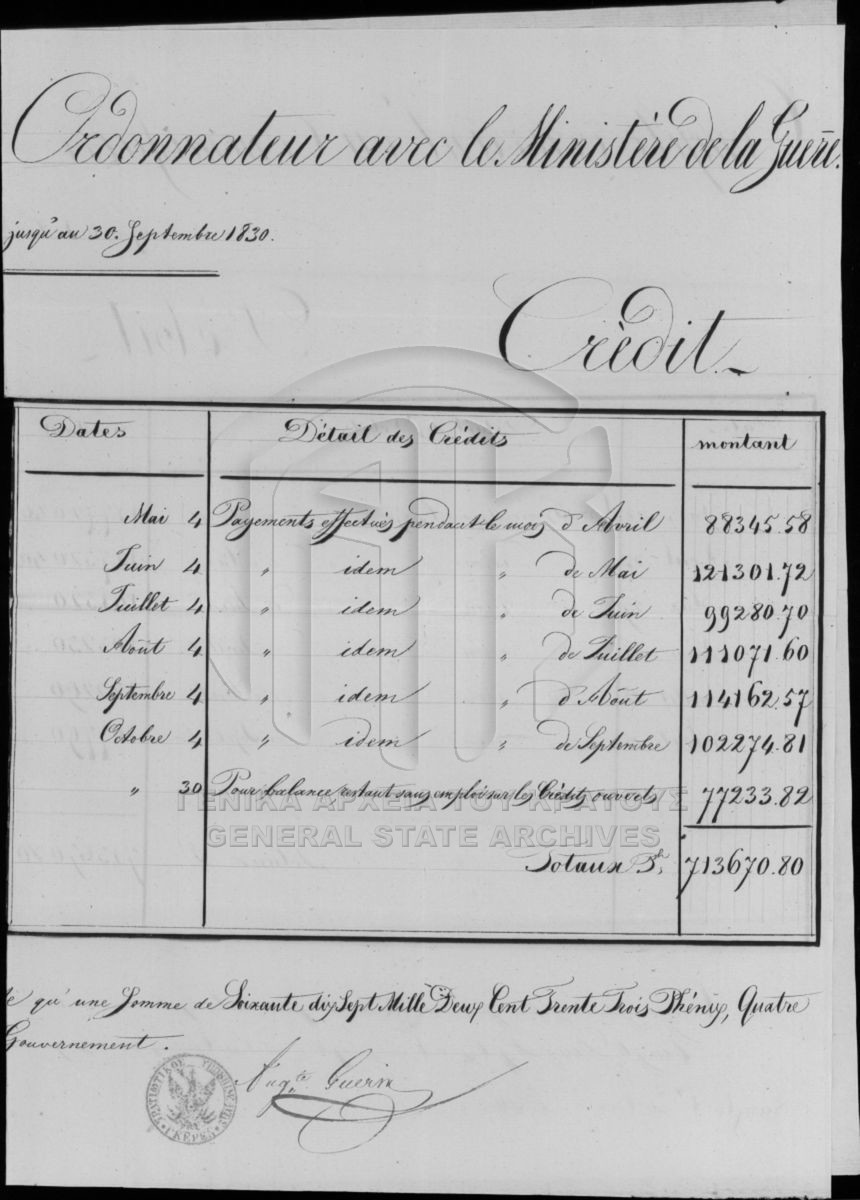 Ordonnateur avec le Ministère de la Guerre.
jusqu'au 30. Septembre 1830.
Crédit
Dates Détail des Crédits montant
Mai 4 Payements effectués pendant le mois d'Avril 88345.58
Juin 4 " idem " de Mai 121301.72
Juillet 4 " idem " de Juin 99280.70
Août 4 " idem " de Juillet 111071.60
Septembre 4 " idem " d'Août 114162.57
Octobre 4 " idem " de Septembre 102274.81
" 30 Pour balance restant sans emploi sur les Crédits ouverts 77233.82
ΓΕΝΙΚΑ ΑΡΧΕΙΑ ΤΟΥ ΚΡΑΤΟΥΣ
GENERAL STATE ARCHIVES
Totaux Ph. 713670.80
qu'une Somme de Soixante dix Sept Mille Deux Cent Trente Trois Phénix, Quatre
Gouvernement.
Aug.te Guerin